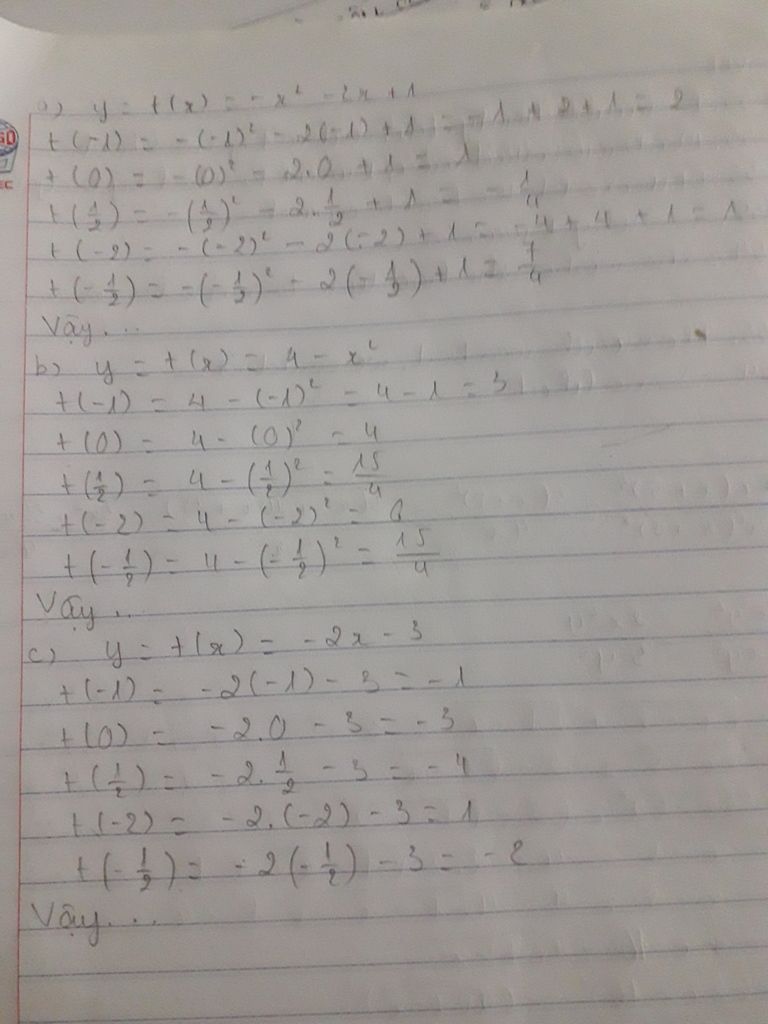 a) y = f(x) = -x² - 2x + 1
f(-1) = -(-1)² - 2(-1) + 1 = -1 + 2 + 1 = 2
f(0) = -(0)² - 2.0 + 1 = 1
f(1/2) = -(1/2)² - 2.1/2 + 1 = -1/4
f(-2) = -(-2)² - 2(-2) + 1 = -4 + 4 + 1 = 1
f(-1/2) = -(-1/2)² - 2(-1/2) + 1 = 7/4
Vậy...
b) y = f(x) = 4 - x²
f(-1) = 4 - (-1)² = 4 - 1 = 3
f(0) = 4 - (0)² = 4
f(1/2) = 4 - (1/2)² = 15/4
f(-2) = 4 - (-2)² = 0
f(-1/2) = 4 - (-1/2)² = 15/4
Vậy...
c) y = f(x) = -2x - 3
f(-1) = -2(-1) - 3 = -1
f(0) = -2.0 - 3 = -3
f(1/2) = -2.1/2 - 3 = -4
f(-2) = -2.(-2) - 3 = 1
f(-1/2) = -2(-1/2) - 3 = -2
Vậy...